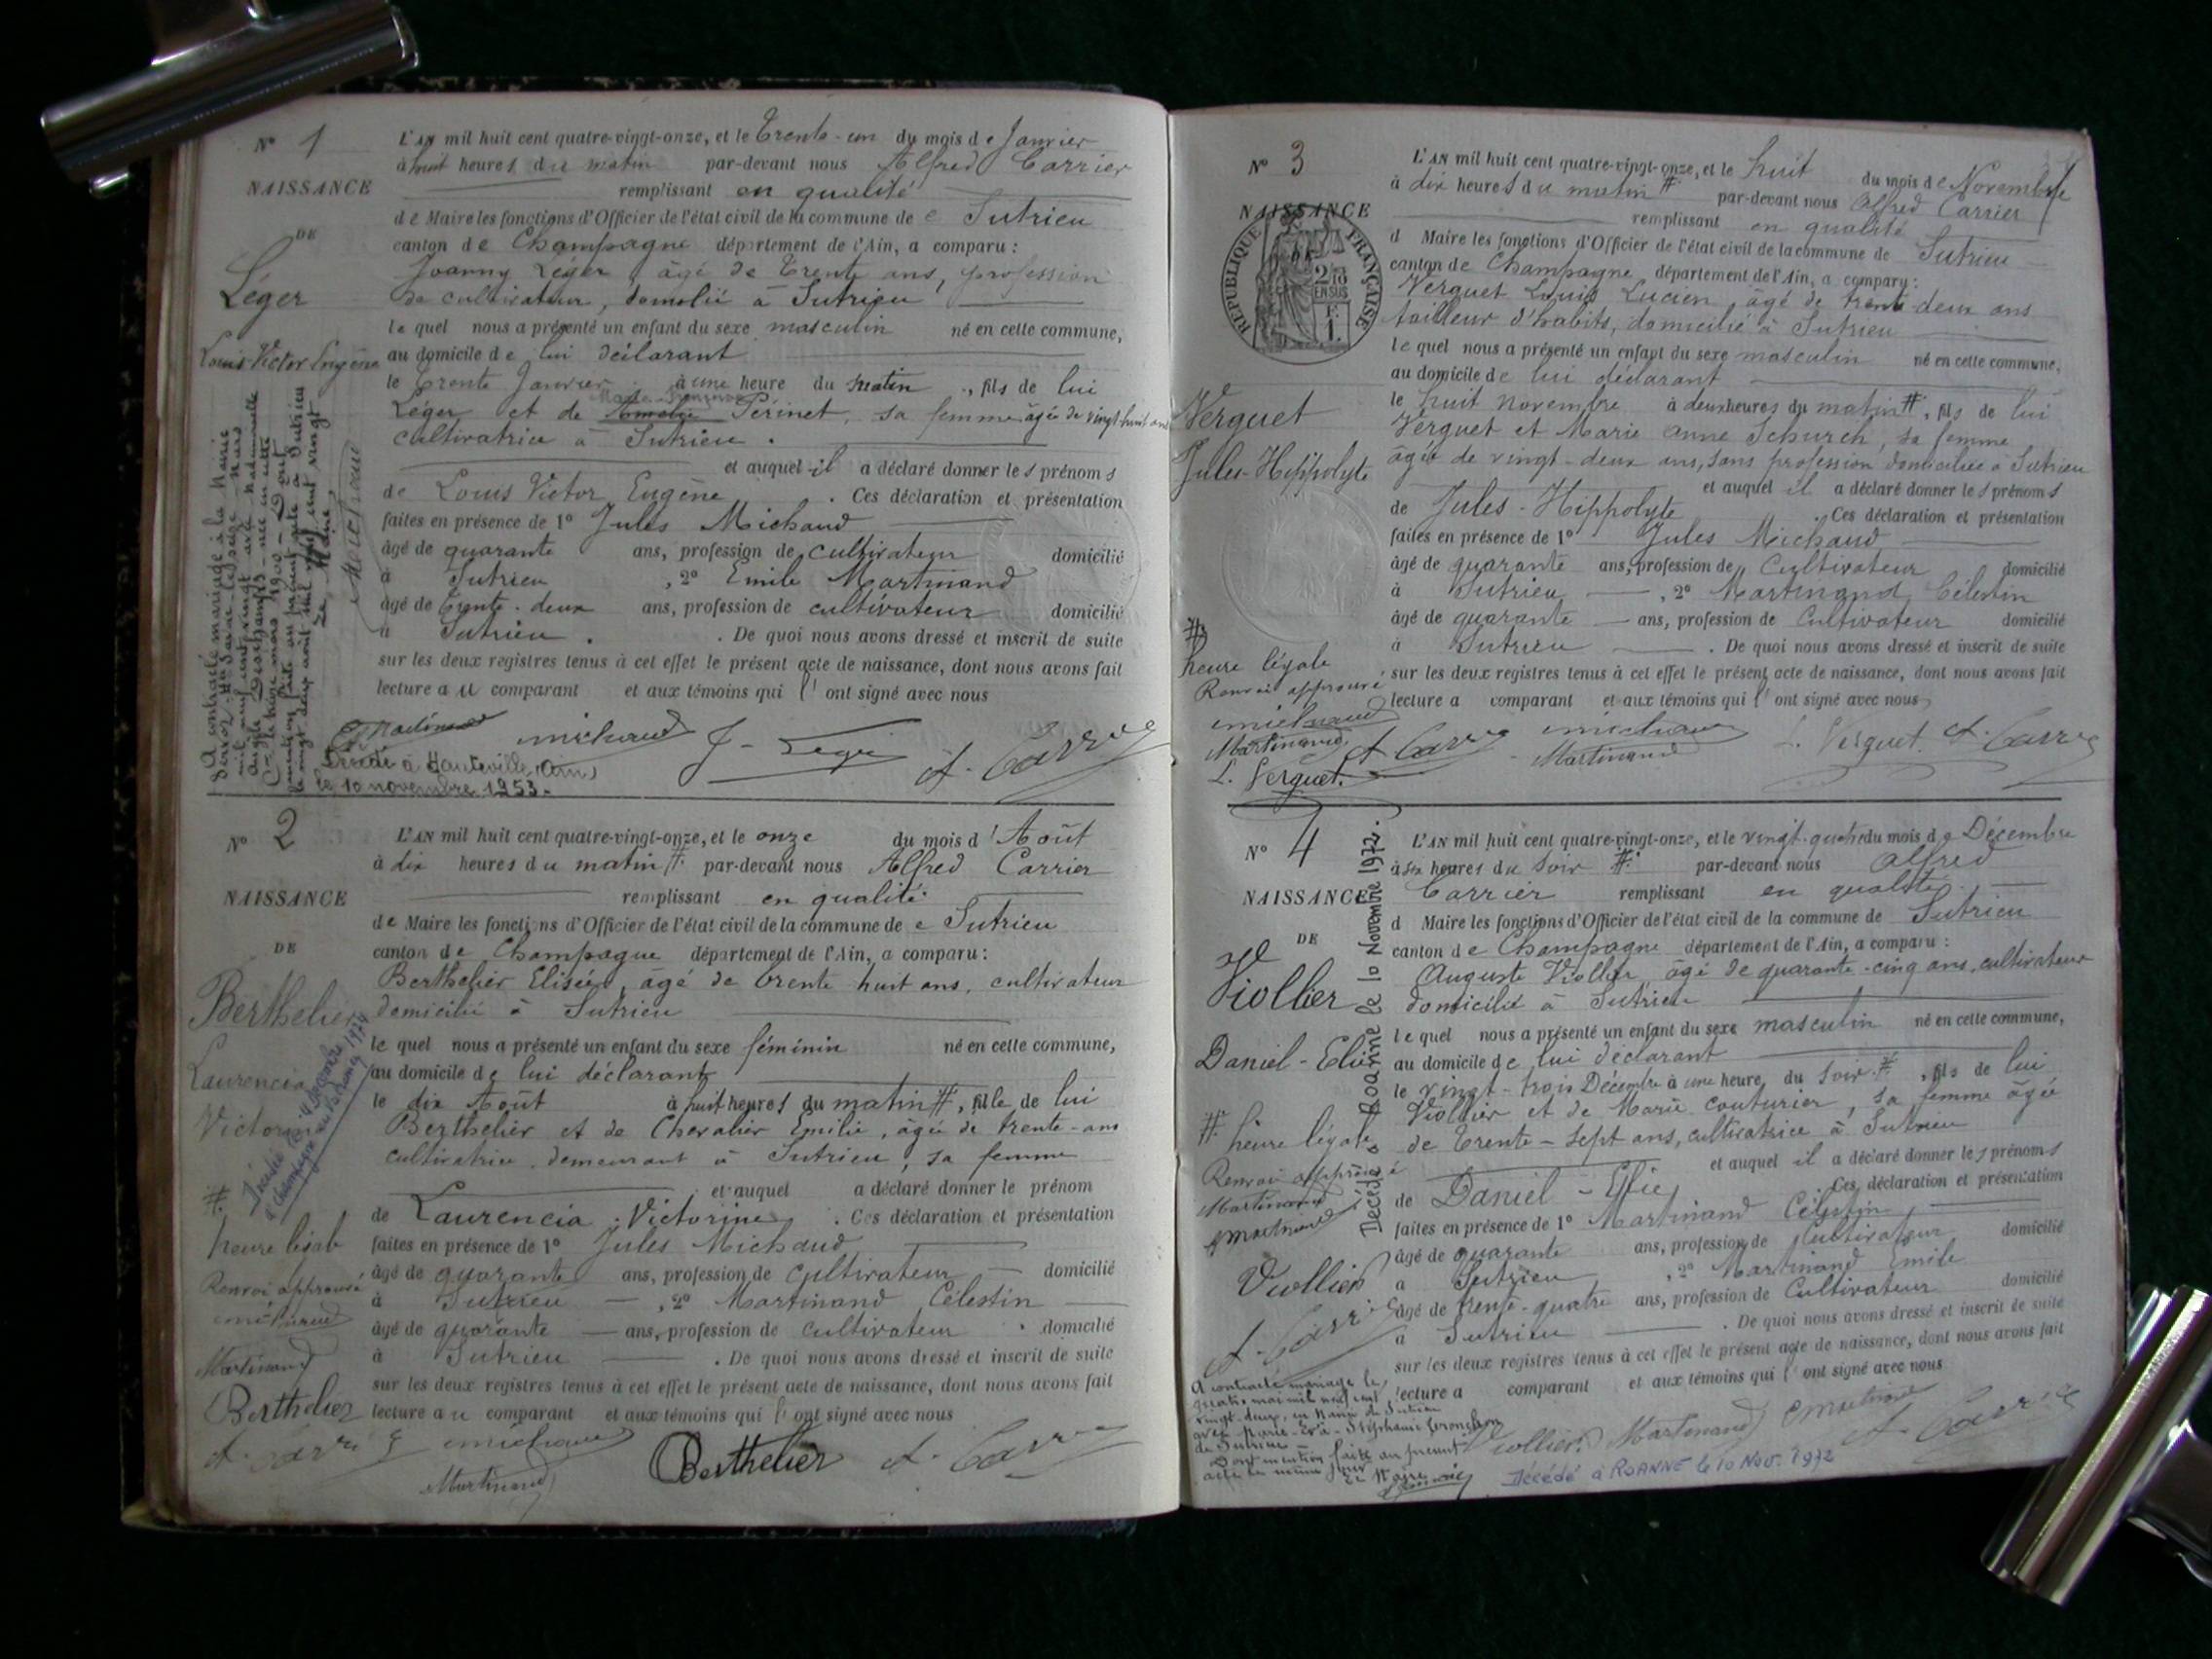 N° 1
NAISSANCE
DE
Léger
Louis Victor Eugène
L'AN mil huit cent quatre-vingt-onze, et le Trente-un du mois de Janvier
à huit heures du matin par-devant nous Alfred Carrier
remplissant en qualité
de Maire les fonctions d'Officier de l'état civil de la commune de e Sutrieu
canton de Champagne département de l'Ain, a comparu :
Joanny Léger, âgé de Trente ans, profession
de cultivateur, domicilié à Sutrieu
le quel nous a présenté un enfant du sexe masculin né en cette commune,
au domicile de lui déclarant
le Trente Janvier à une heure du matin, fils de lui
Léger et de Perinet, sa femme âgée de vingt-huit ans
cultivatrice à Sutrieu.
et auquel il a déclaré donner le s prénom s
de Louis Victor Eugène. Ces déclaration et présentation
faites en présence de 1° Jules Michaud
âgé de quarante ans, profession de cultivateur domicilié
à Sutrieu, 2° Emile Martinand
âgé de Trente-deux ans, profession de cultivateur domicilié
à Sutrieu. De quoi nous avons dressé et inscrit de suite
sur les deux registres tenus à cet effet le présent acte de naissance, dont nous avons fait
lecture au comparant et aux témoins qui l' ont signé avec nous
E Martinand michaud J. Léger A. Carrier
Décédé à Hauteville (Ain)
le 10 novembre 1953.
N° 2
NAISSANCE
DE
Berthelier
Laurencia
Victorine
Décédée le 4 Décembre 1974
à Champagne en Valromey
#
heure légale
Renvoi approuvé
michaud
Martinand
Berthelier
A. Carrier
L'AN mil huit cent quatre-vingt-onze, et le onze du mois d'Août
à dix heures du matin # par-devant nous Alfred Carrier
remplissant en qualité
de Maire les fonctions d'Officier de l'état civil de la commune de e Sutrieu
canton de Champagne département de l'Ain, a comparu :
Berthelier Elisée, âgé de trente huit ans, cultivateur
domicilié à Sutrieu
le quel nous a présenté un enfant du sexe féminin né en cette commune,
au domicile de lui déclarant
le dix Août à huit heures du matin #, fille de lui
Berthelier et de Chevalier Emilie, âgée de trente-ans
cultivatrice, demeurant à Sutrieu, sa femme
et auquel a déclaré donner le prénom
de Laurencia Victorine. Ces déclaration et présentation
faites en présence de 1° Jules Michaud
âgé de quarante ans, profession de cultivateur domicilié
à Sutrieu, 2° Martinand Célestin
âgé de quarante ans, profession de cultivateur domicilié
à Sutrieu. De quoi nous avons dressé et inscrit de suite
sur les deux registres tenus à cet effet le présent acte de naissance, dont nous avons fait
lecture au comparant et aux témoins qui l' ont signé avec nous
michaud Berthelier A. Carrier
Martinand
N° 3
NAISSANCE
RÉPUBLIQUE FRANÇAISE
2/10
EN SUS
Verguet
Jules-Hippolyte
#
heure légale
Renvoi approuvé
michaud
Martinand A Carrier
L. Verguet.
L'AN mil huit cent quatre-vingt-onze, et le huit du mois de Novembre
à dix heures du matin # par-devant nous Alfred Carrier
remplissant en qualité
d Maire les fonctions d'Officier de l'état civil de la commune de Sutrieu
canton de Champagne, département de l'Ain, a comparu :
Verguet Louis Lucien, âgé de trente-deux ans
tailleur d'habits, domicilié à Sutrieu
le quel nous a présenté un enfant du sexe masculin né en cette commune,
au domicile de lui déclarant
le huit novembre à deux heures du matin #, fils de lui
Verguet et Marie Anne Schurch, sa femme
âgée de vingt-deux ans, sans profession domiciliée à Sutrieu
et auquel il a déclaré donner le s prénom s
de Jules-Hippolyte. Ces déclaration et présentation
faites en présence de 1° Jules Michaud
âgé de quarante ans, profession de Cultivateur domicilié
à Sutrieu, 2° Martinand Célestin
âgé de quarante ans, profession de Cultivateur domicilié
à Sutrieu. De quoi nous avons dressé et inscrit de suite
sur les deux registres tenus à cet effet le présent acte de naissance, dont nous avons fait
lecture a comparant et aux témoins qui l' ont signé avec nous
michaud L. Verguet. A. Carrier
Martinand
N° 4
NAISSANCE
DE
Viollier
Daniel-Elie
Décédé à Roanne le 10 Novembre 1972.
# heure légale
Renvoi approuvé
Martinand
E martinand
Viollier
A. Carrier
A contracté mariage le
quatre mai mil neuf cent
vingt-deux, en Mairie de Sutrieu
avec Marie
de Sutrieu
Dont mention faite au présent
acte le même jour
Le Maire
L'AN mil huit cent quatre-vingt-onze, et le vingt-quatre du mois de Décembre
à six heures du soir # par-devant nous Alfred
Carrier remplissant en qualité
d Maire les fonctions d'Officier de l'état civil de la commune de Sutrieu
canton de Champagne département de l'Ain, a comparu :
Auguste Viollier, âgé de quarante-cinq ans, cultivateur
domicilié à Sutrieu
le quel nous a présenté un enfant du sexe masculin né en cette commune,
au domicile de lui déclarant
le vingt-trois Décembre à une heure du soir #, fils de lui
Viollier et de Marie Couturier, sa femme âgée
de Trente-sept ans, cultivatrice à Sutrieu
et auquel il a déclaré donner le s prénom s
de Daniel-Elie. Ces déclaration et présentation
faites en présence de 1° Martinand Célestin
âgé de quarante ans, profession de Cultivateur domicilié
à Sutrieu, 2° Martinand Emile
âgé de trente-quatre ans, profession de Cultivateur domicilié
à Sutrieu. De quoi nous avons dressé et inscrit de suite
sur les deux registres tenus à cet effet le présent acte de naissance, dont nous avons fait
lecture a comparant et aux témoins qui l' ont signé avec nous
Viollier Martinand E martinand A. Carrier
Décédé à ROANNE le 10 Nov. 1972